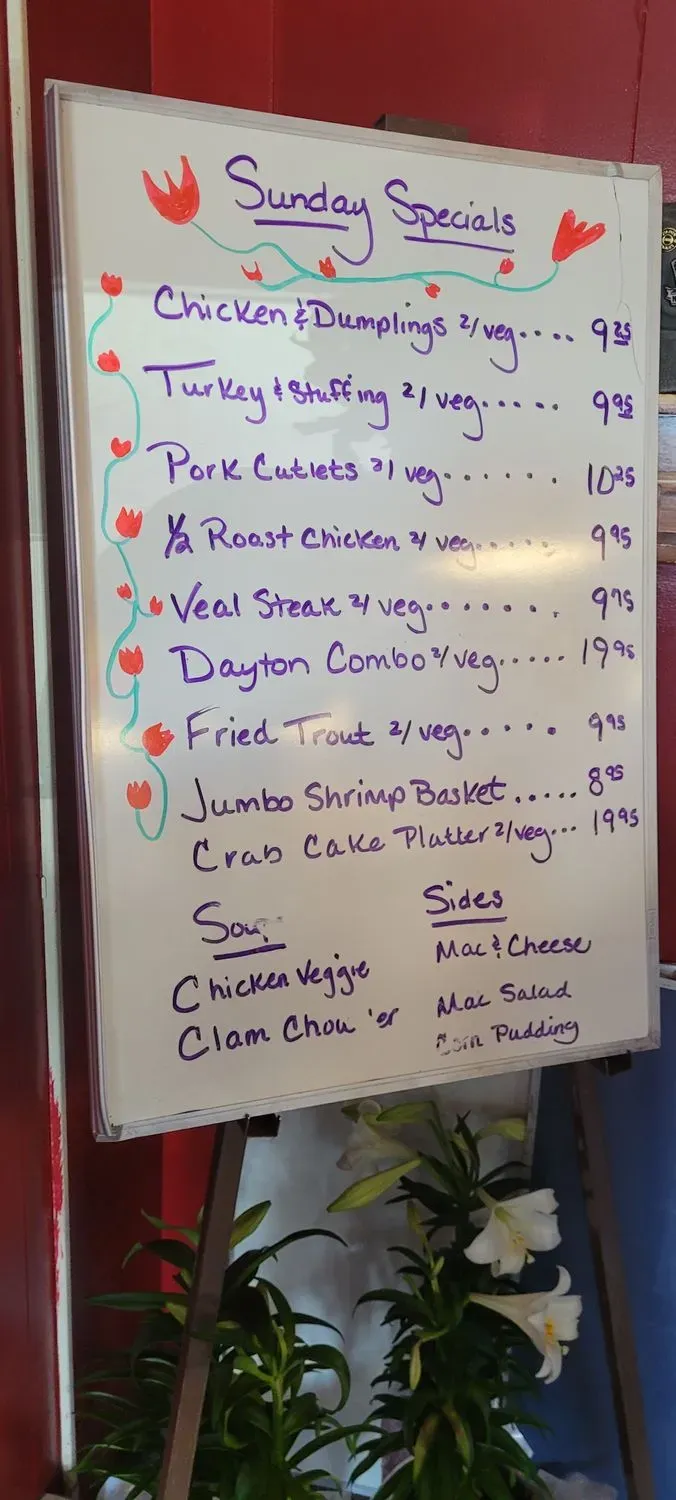 Sunday Specials
Chicken & Dumplings 2/veg.... 9 25
Turkey & Stuffing 2/veg..... 9 95
Pork Cutlets 2/veg...... 10 25
1/2 Roast Chicken 2/veg..... 9 95
Veal Steak 2/veg....... 9 75
Dayton Combo 2/veg..... 19 95
Fried Trout 2/veg..... 9 95
Jumbo Shrimp Basket..... 8 95
Crab Cake Platter 2/veg... 19 95
Soup
Chicken Veggie
Clam Chow'er
Sides
Mac & Cheese
Mac Salad
Corn Pudding